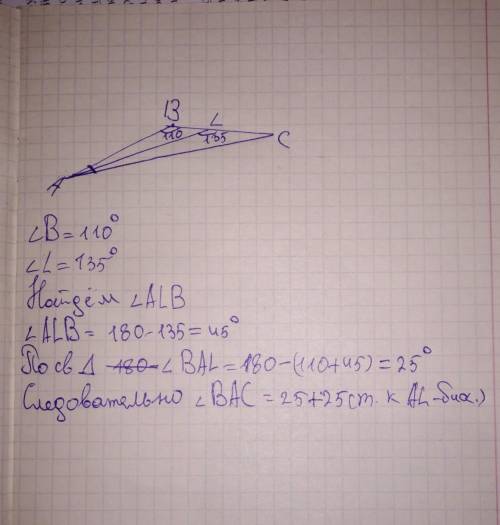 B
L
110
135
C
A
∠B = 110°
∠L = 135°
Найдём ∠ALB
∠ALB = 180-135 = 45°
По св Δ 180- ∠BAL = 180-(110+45) = 25°
Следовательно ∠BAC = 25+25 (т. к AL-бис.)